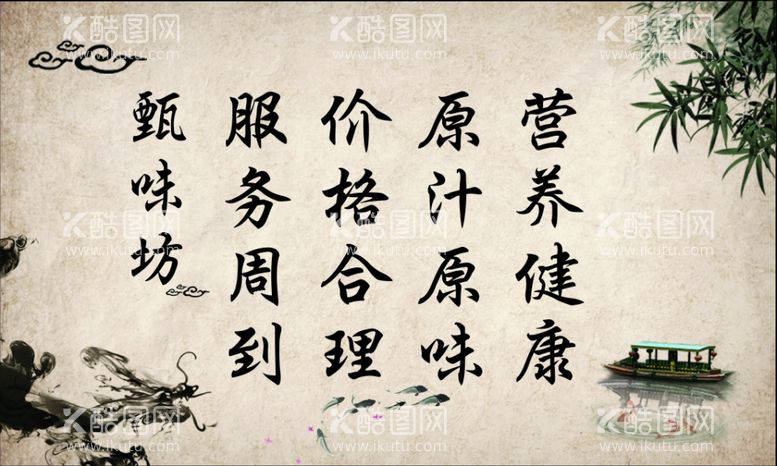 营养健康
原汁原味
价格合理
服务周到
甄味坊
酷图网
www.ikutu.com